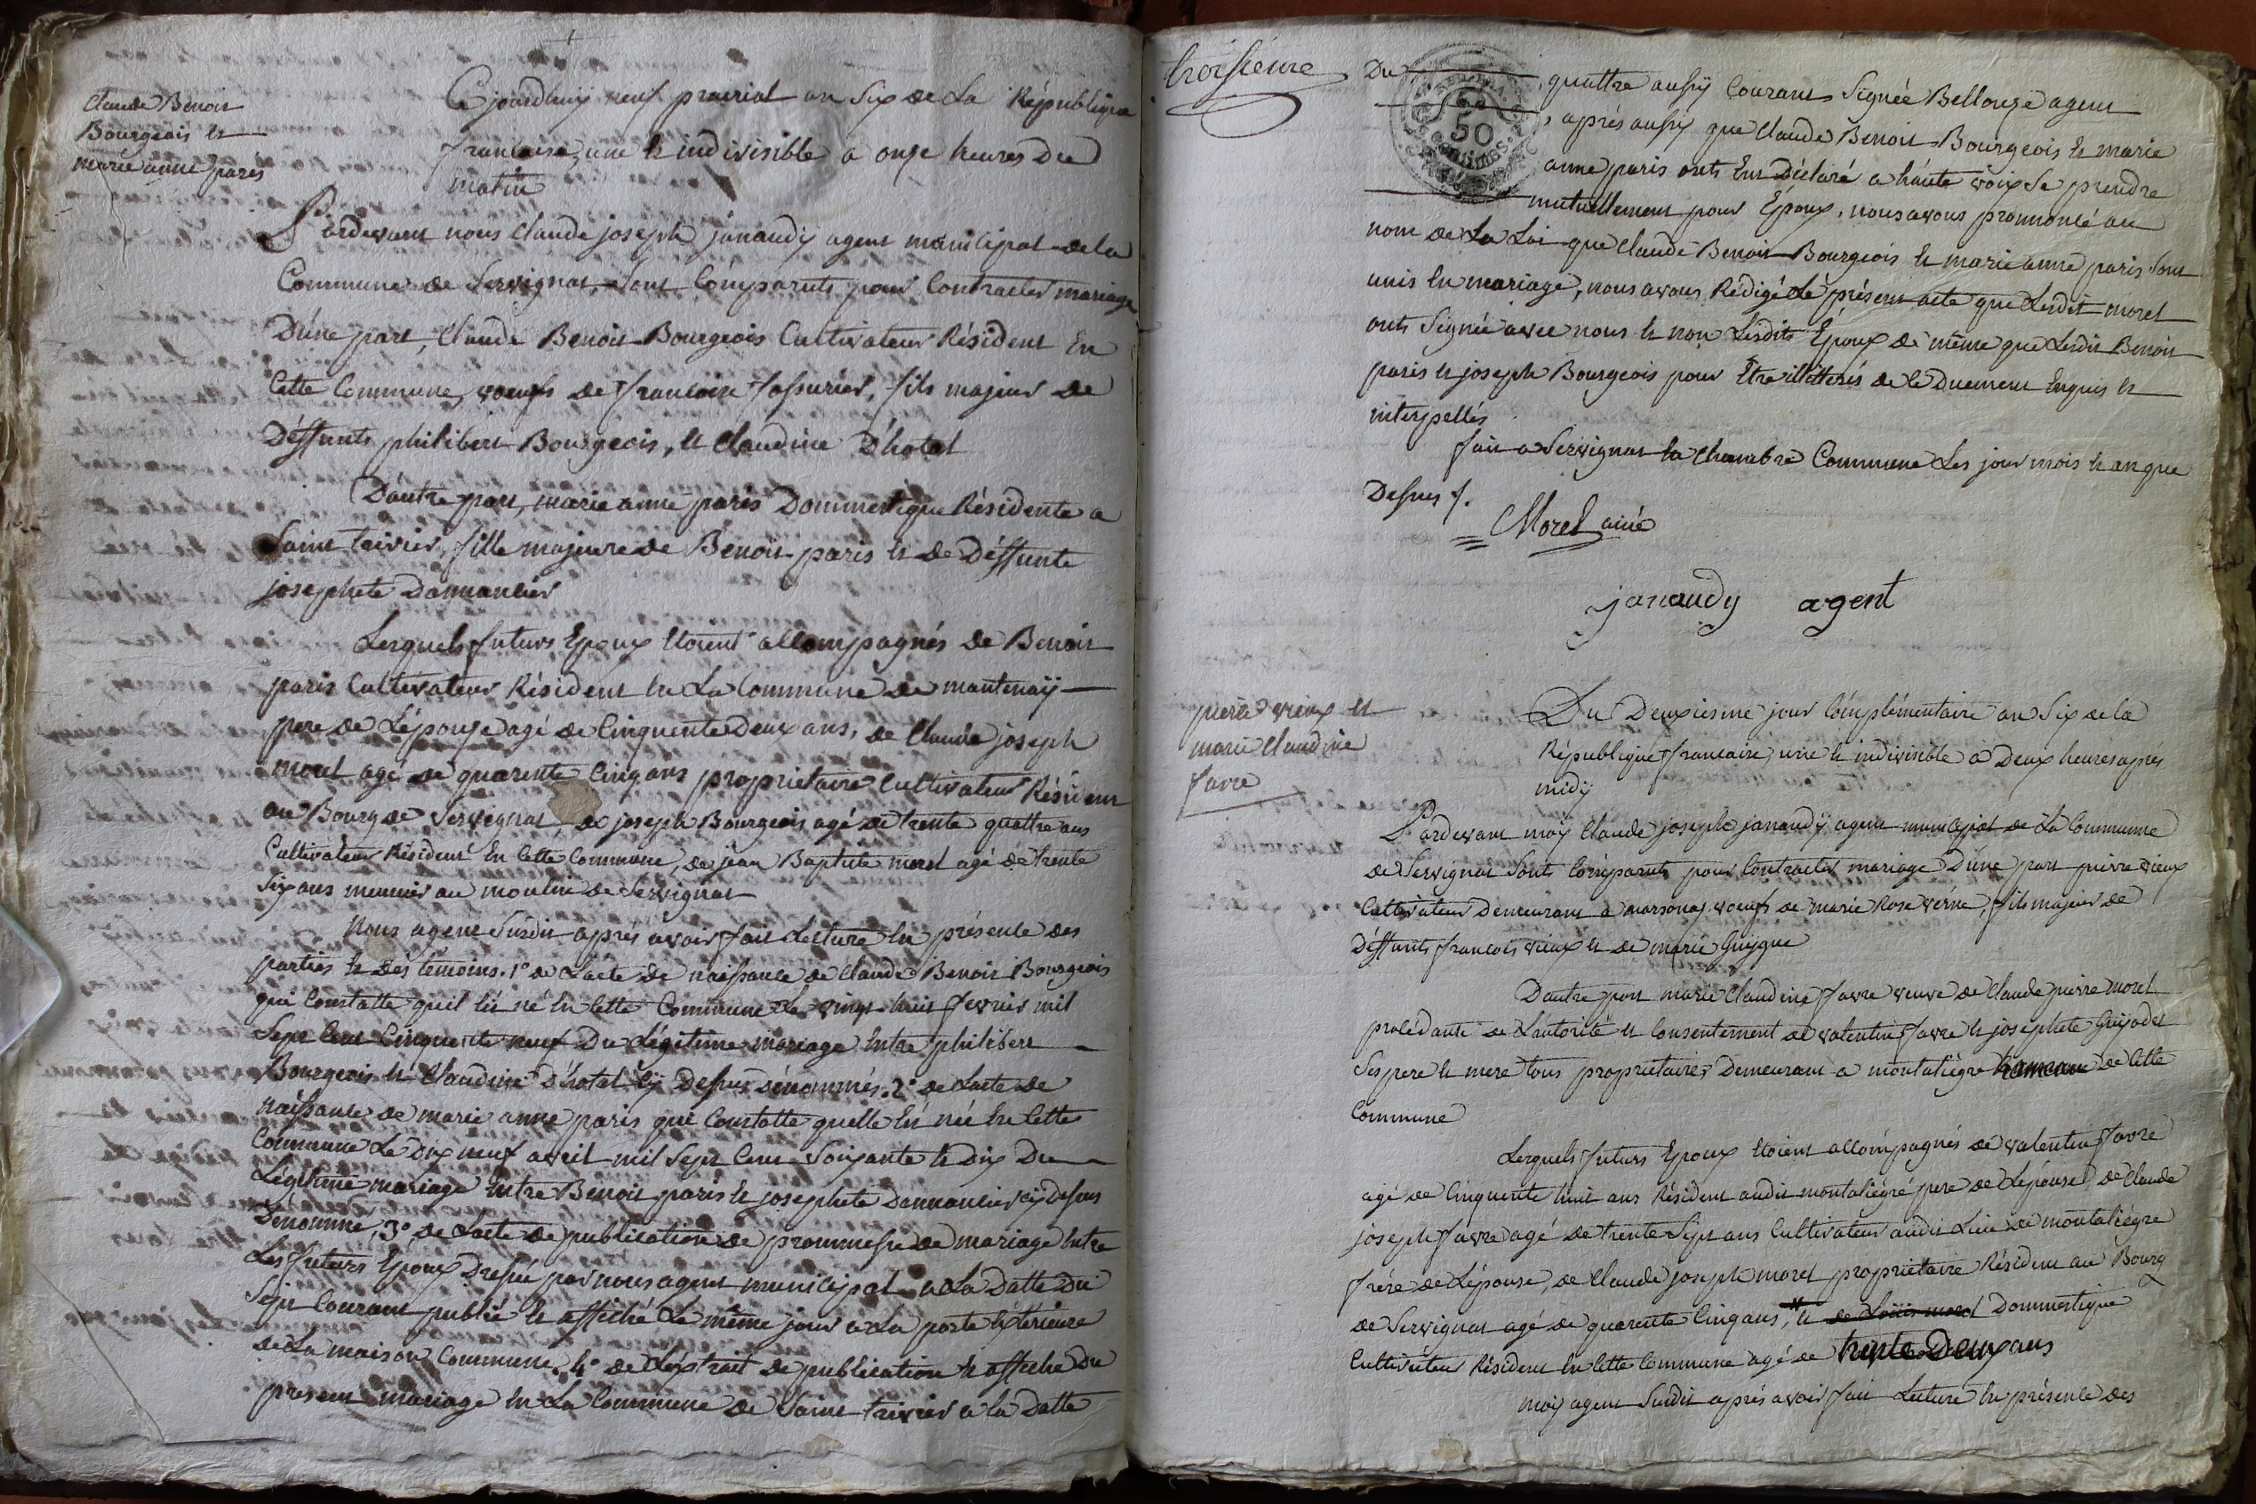 Claude Benoit
Bourgeois et
marie anne parés
Ce jourdhuy neuf prairial an Six de La République
francaise, une et indivisible a onze heures Du
matin
Pardevant nous Claude joseph janaudy agent municipal de la
Commune de Servignat, sont Comparuts pour Contracter mariage
D'une part, Claude Benoit Bourgeois Cultivateur Résident En
Cette Commune, voeufs de francoise, fils majeur de
Déffunts philibert Bourgeois, et Claudine D'hotal
D'autre part, marie anne paris Dommestique Résidente a
Saint trivier, fille majeure de Benoit paris et de Déffunte
josephte Dannancier
Lesquels futurs Epoux Etoient accompagnés de Benoit
paris Cultivateur Résident En La Commune de mantenaÿ
pere de L'épouse agé de Cinquente Deux ans, de Claude joseph
morel agé de quarente Cinq ans proprietaire Cultivateur Résident
au Bourg de Servignat, de joseph Bourgeois agé de trente quattre ans
Cultivateur Résident En Cette Commune, de jean Baptiste morel agé de trente
Six ans meunier au moulin de Servignat
Nous agent Susdit aprés avoir fait Lecture En présence des
parties et des témoins. 1° de L'acte de naissance de Claude Benoit Bourgeois
qui Constatte quil Est né En Cette Commune Le vingt huit fevrier mil
Sept Cent Cinquente neuf Du Légitime mariage Entre philibert
Bourgeois et Claudine D'hotal Cÿ Dessus Dénommés. 2° de L'acte de
naissance de marie anne paris qui Constatte quelle Est née En Cette
Commune Le Dix neuf avril mil Sept Cent Soixante et Dix Du
Légitime mariage Entre Benoit paris et josephte Dannancier Cÿ Dessus
Dénommé, 3° de L'acte de publication de prommesse de mariage Entre
Les futurs Epoux Dressé par nous agent municipal a La Datte Du
Sept Courant publié et affiché Le même jour a La porte Extérieure
de La maison Commune, 4° de L'extrait de publication et affiche Du
present mariage En La Commune de Saint trivier a la Datte
troisieme
50
Centimes
Du quattre aussÿ Courant Signée Bellouze agent
, aprés aussÿ que Claude Benoit Bourgeois et marie
anne paris onts Eus Déclaré a háute voix Se prendre
mutuellement pour Époux, nous avons prononcé au
nom de La Loi que Claude Benoit Bourgeois et marie anne paris Sont
unis En mariage, nous avons Rédigé Le présent acte que Lesdit morel
onts Signée avec nous et non Lesdits Époux de même que Lesdit Benoit
paris et joseph Bourgeois pour Etre illétterés de ce Duement Enquis et
interpellés
fait a Servignat La Chambre Commune Les jour mois et an que
Dessus f.
Morel ainé
janaudy agent
pierre vieux et
marie Claudine
favre
Du Deuxiesme jour Complémentaire an Six de la
République francaise, une et indivisible a Deux heures apres
midÿ
Pardevant moÿ Claude joseph janaudÿ agent municipal de La Commune
de Servignat Sont Comparuts pour Contracter mariage D'une part pierre vieux
Cultivateur Demeurant a marsonas voeufs de marie Rose verne, fils majeur de
Déffunts francois vieux et de marie Guÿgue
D'autre part marie Claudine favre veuve de Claude pierre morel
procédante de L'autorité et Consentement de valentin favre et josephte Guÿodet
Ses pere et mere tous proprietaires Demeurant a montaliégre hameau de Cette
Commune
Lesquels futurs Epoux Etoient accompagnés de valentin favre
agé de Cinquente huit ans Résident audit montaliégré pere de L'épouse, de Claude
joseph favre agé de trente Sept ans Cultivateur audit Lieu de montaliégre
frére de L'épouse, de Claude joseph morel proprietaire Résident au Bourg
de Servignat agé de quarente Cinq ans, et de Loüis morel Dommestique
Cultivateur Résident En Cette Commune agé de trente Deux ans
moÿ agent Susdit aprés avoir fait Lecture En présence des